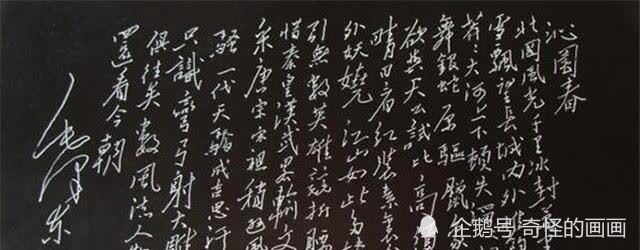 沁園春
北國風光千里冰封
雪飄望長城内外
莽々大河上下頓失
舞銀蛇原驅臘
欲與天公試比高須
晴日看紅裝素裹
外妖嬈江山如此多嬌
引無數英雄競折腰
惜秦皇漢武畧輸文
采唐宗宋祖稍遜風
騷一代天驕成吉思汗
只識彎弓射大雕
俱往矣數風流人物
還看今朝
毛澤東
企鹅号 奇怪的画画